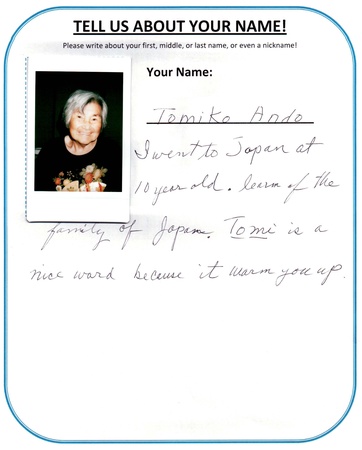 TELL US ABOUT YOUR NAME!
Please write about your first, middle, or last name, or even a nickname!
Your Name:
Tomiko Ando
I went to Japan at
10 year old. learn of the
family of Japan. Tomi is a
nice word because it warm you up.